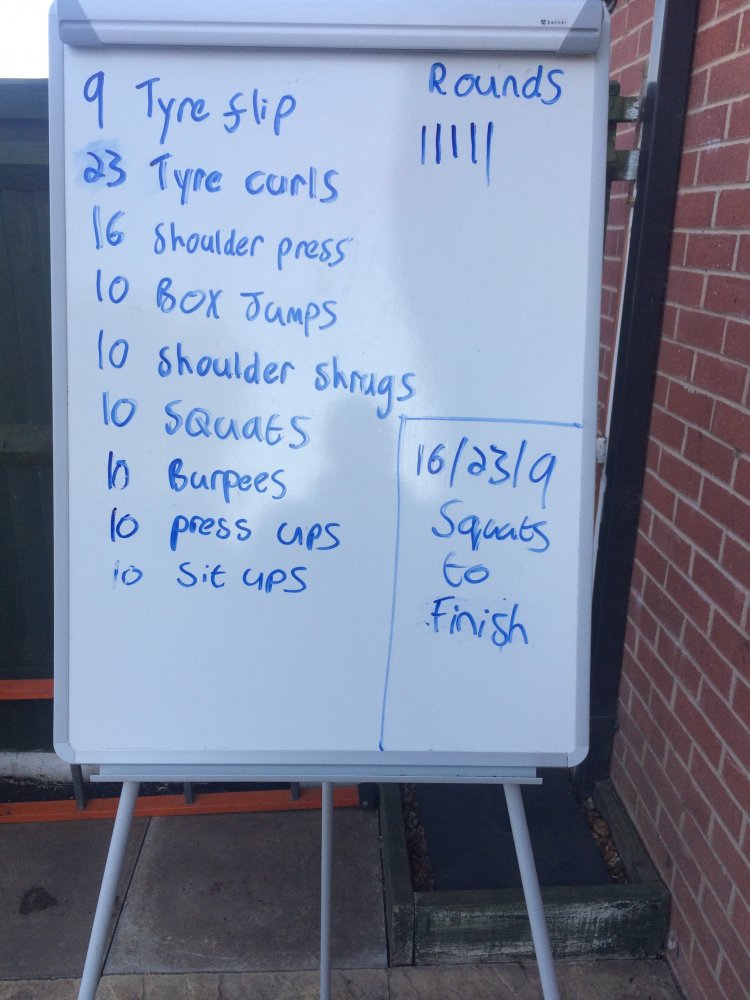 9 Tyre flip
23 Tyre curls
16 shoulder press
10 BOX Jumps
10 shoulder shrugs
10 SQuats
10 Burpees
10 press ups
10 Sit ups
Rounds
|||||
16/23/9
Squats
to
Finish